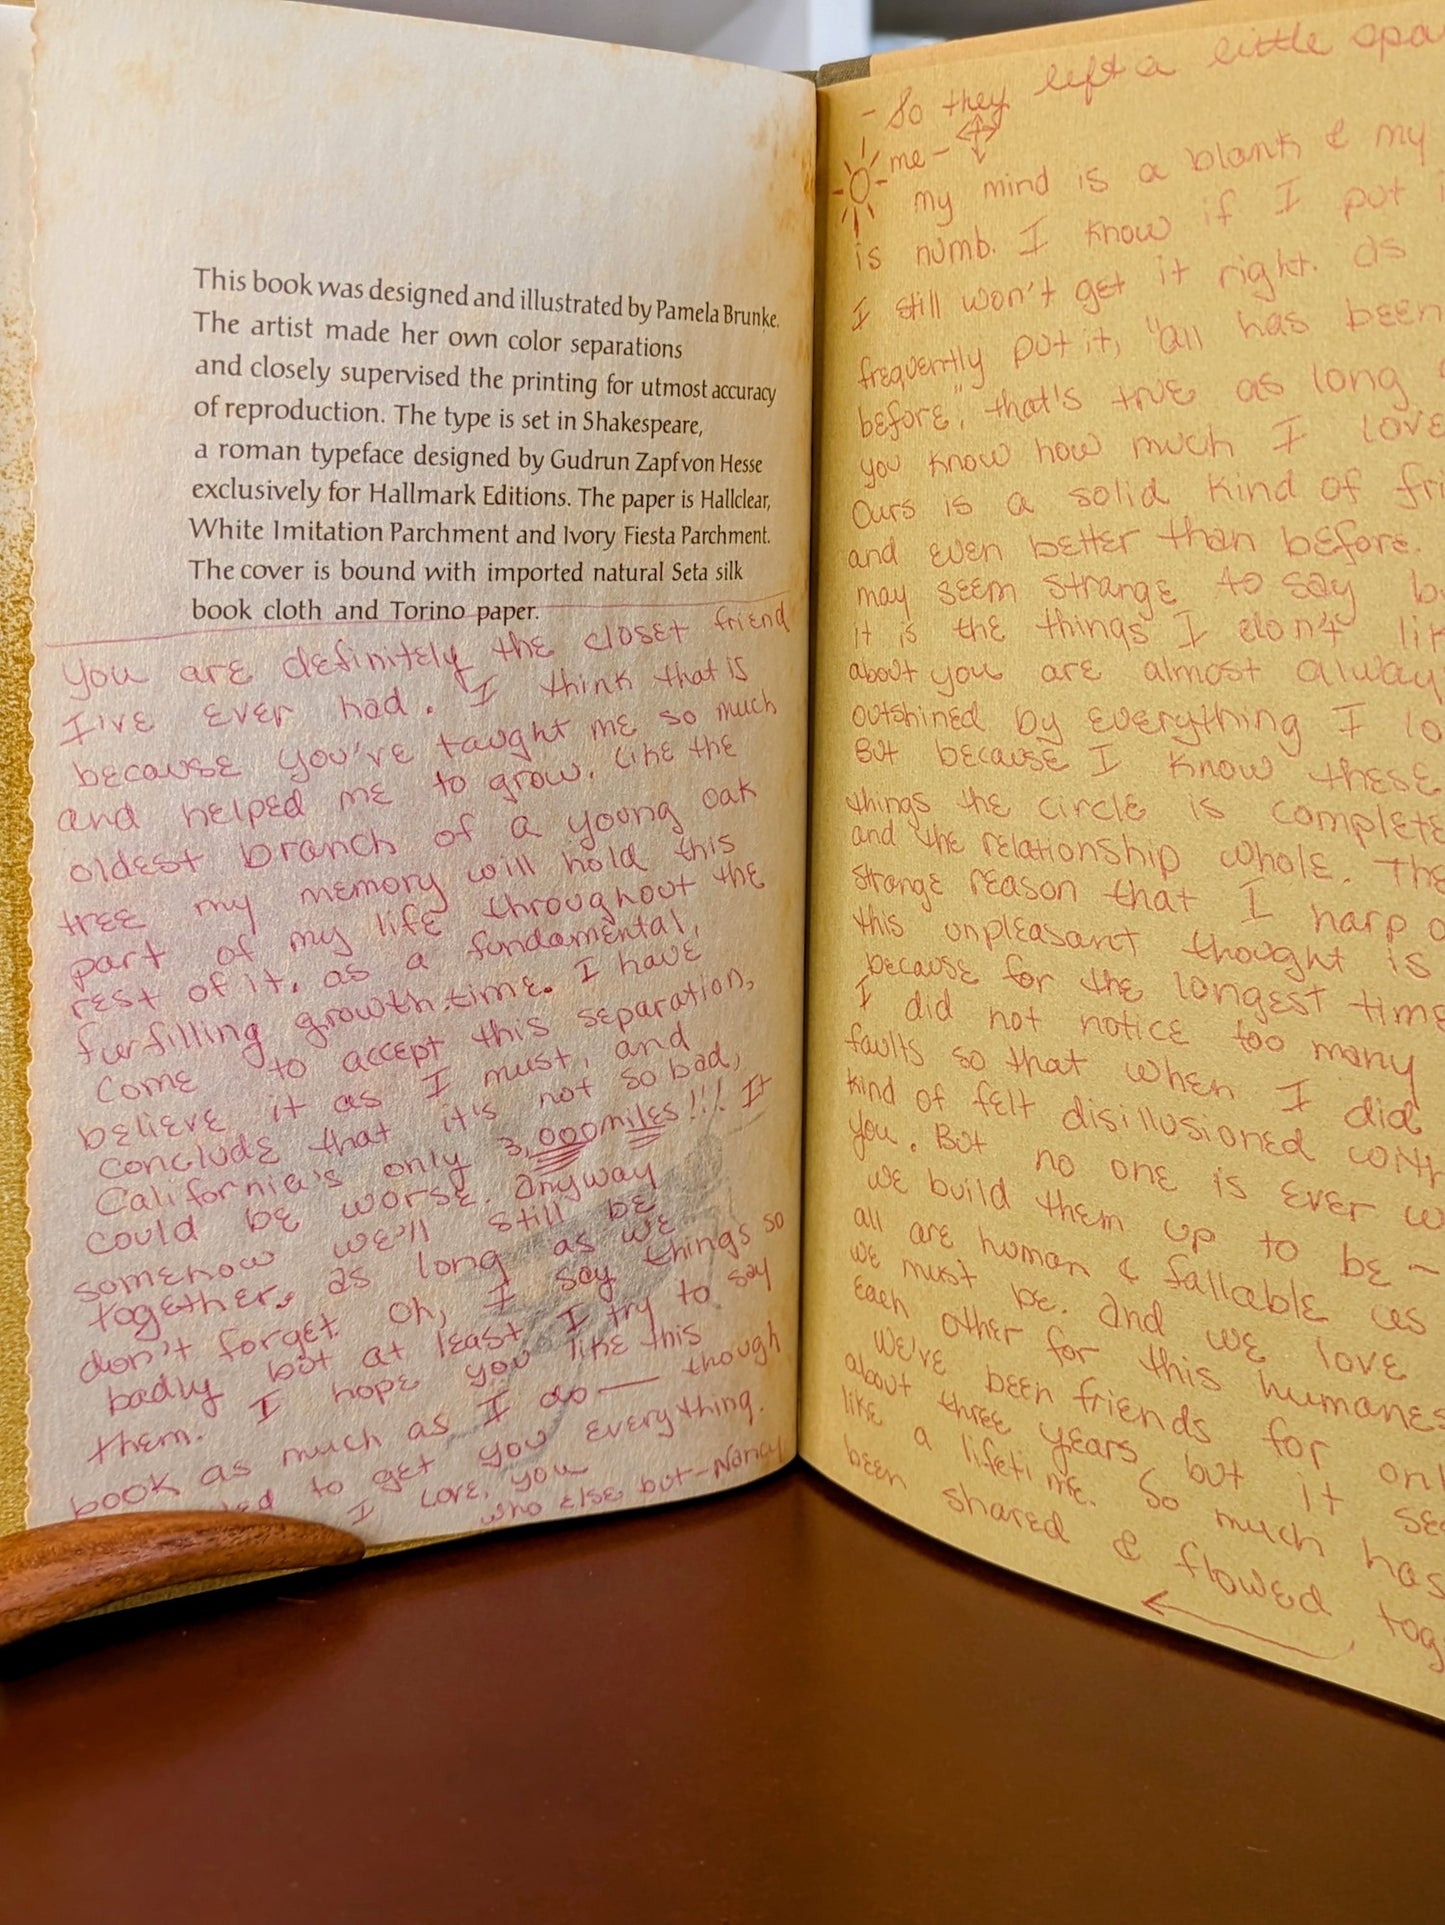 This book was designed and illustrated by Pamela Brunke.
The artist made her own color separations
and closely supervised the printing for utmost accuracy
of reproduction. The type is set in Shakespeare,
a roman typeface designed by Gudrun Zapf von Hesse
exclusively for Hallmark Editions. The paper is Hallclear,
White Imitation Parchment and Ivory Fiesta Parchment.
The cover is bound with imported natural Seta silk
book cloth and Torino paper.
You are definitely the closet friend
I've ever had. I think that is
because you've taught me so much
and helped me to grow. Like the
oldest branch of a young oak
tree my memory will hold this
part of my life throughout the
rest of it, as a fundamental,
furfilling growth-time. I have
come to accept this separation,
believe it as I must, and
conclude that it's not so bad,
California's only 3,000 miles!!! It
could be worse. Anyway
somehow we'll still be
together, as long as we
don't forget. Oh, I say things so
badly but at least I try to say
them. I hope you like this
book as much as I do — though
to get you everything.
I love you
who else but - Nancy
- So they left a little
me -
my mind is a blank & my
is numb. I know if I put
I still won't get it right. as
frequently put it, "all has been
before", that's true as long
you know how much I love
Ours is a solid kind of
and even better than before.
may seem strange to say
it is the things I don't
about you are almost
outshined by everything I
But because I know these
things the circle is complete
and the relationship whole. The
strange reason that I harp
this unpleasant thought is
because for the longest time
I did not notice too many
faults so that when I did
kind of felt disillusioned
you. But no one is ever
we build them up to be ~
all are human & fallable as
we must be. And we love
each other for this
We've been friends for
about three years but it
like a lifetime. So much has
been shared & flowed